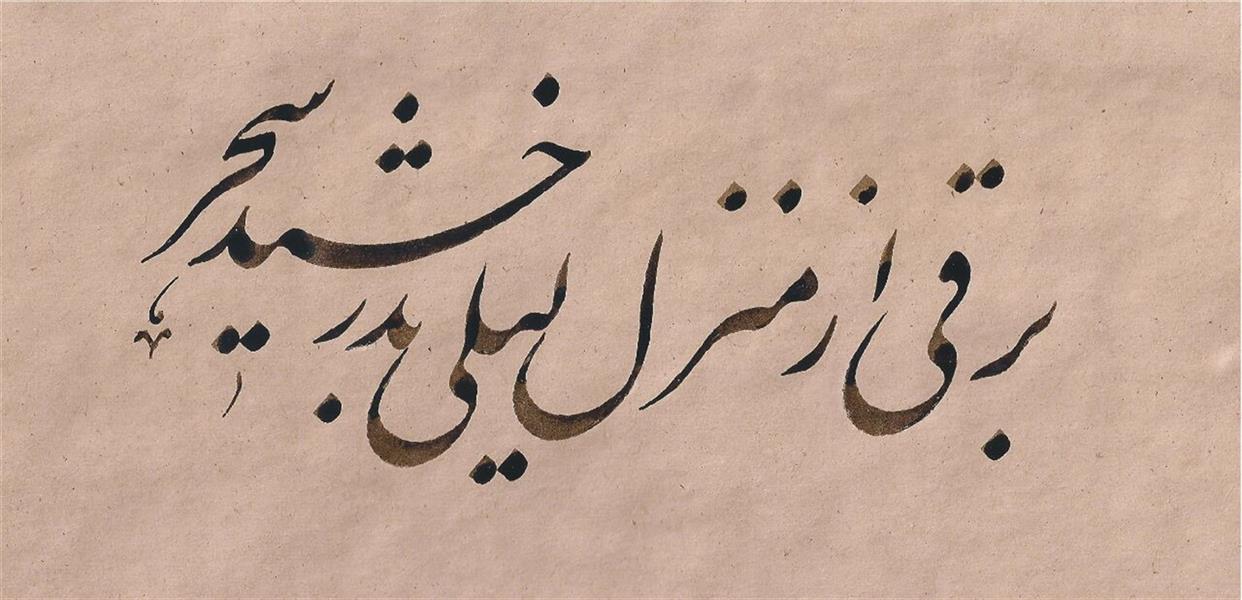 برقی از منزل لیلی بدرخشید سحر